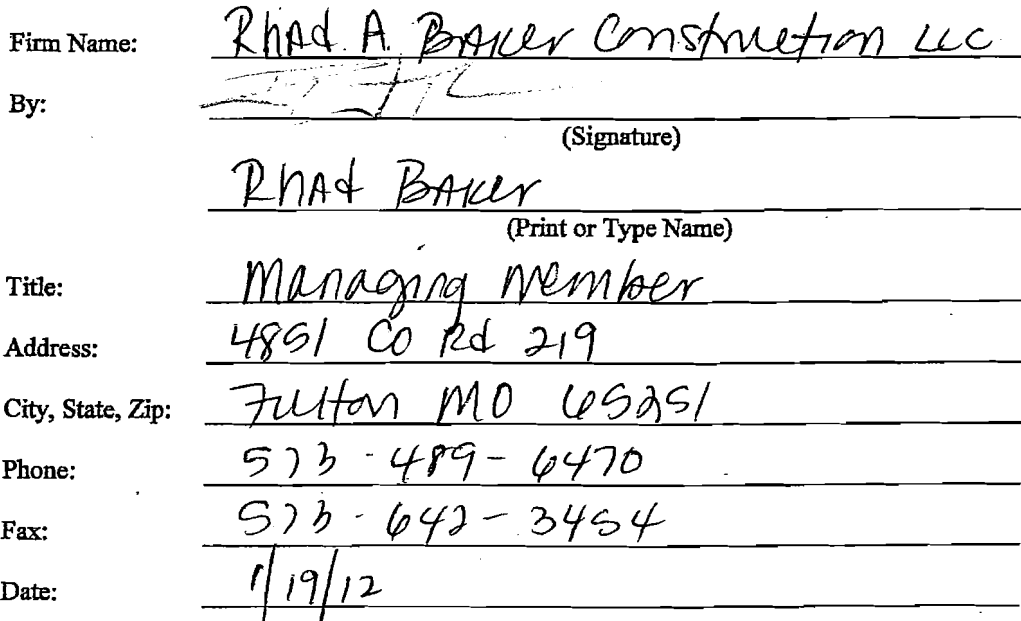 Firm Name: Rhad. A. Baker Construction LLC
By:
(Signature)
Rhad Baker
(Print or Type Name)
Title: Managing Member
Address: 4851 Co Rd 219
City, State, Zip: Fulton MO 65251
Phone: 573-489-6470
Fax: 573-642-3454
Date: 1/19/12